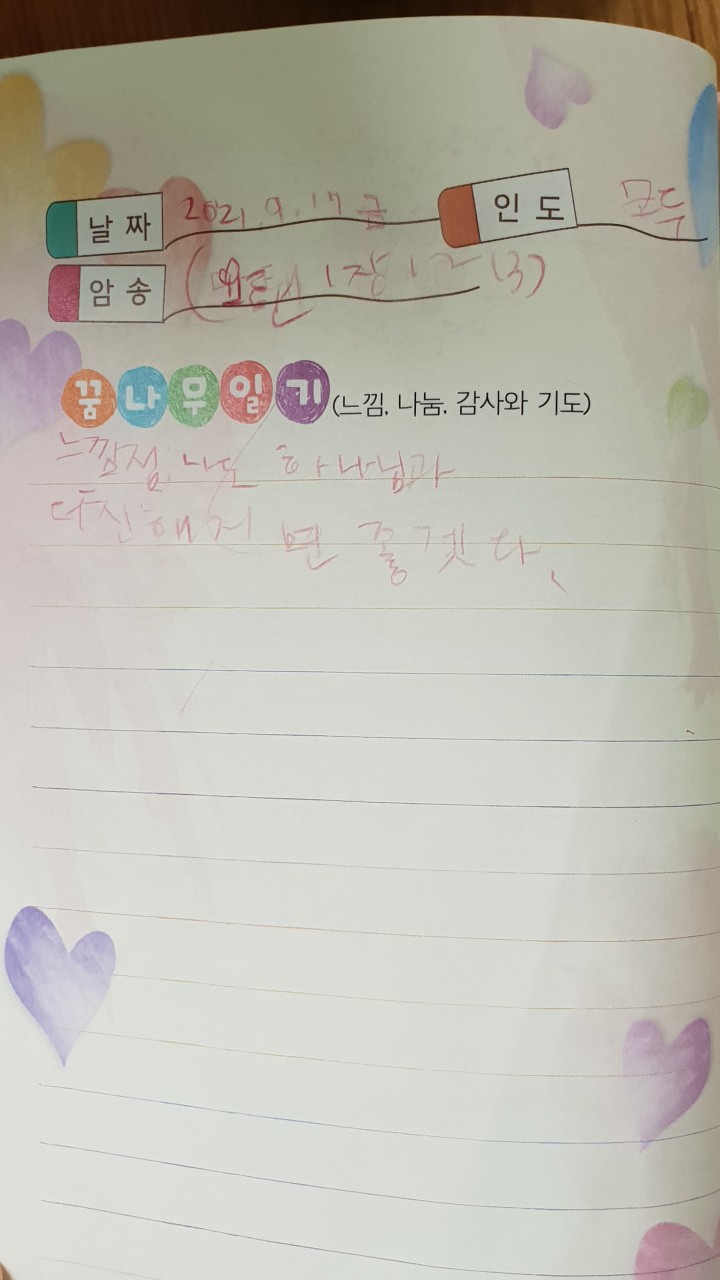 날짜 2021.9.17 금 인도 모두
암송 ( 1장 1~13)
꿈나무일기 (느낌, 나눔, 감사와 기도)
느낌점. 나도 하나님과
더친해지면 좋겟다.